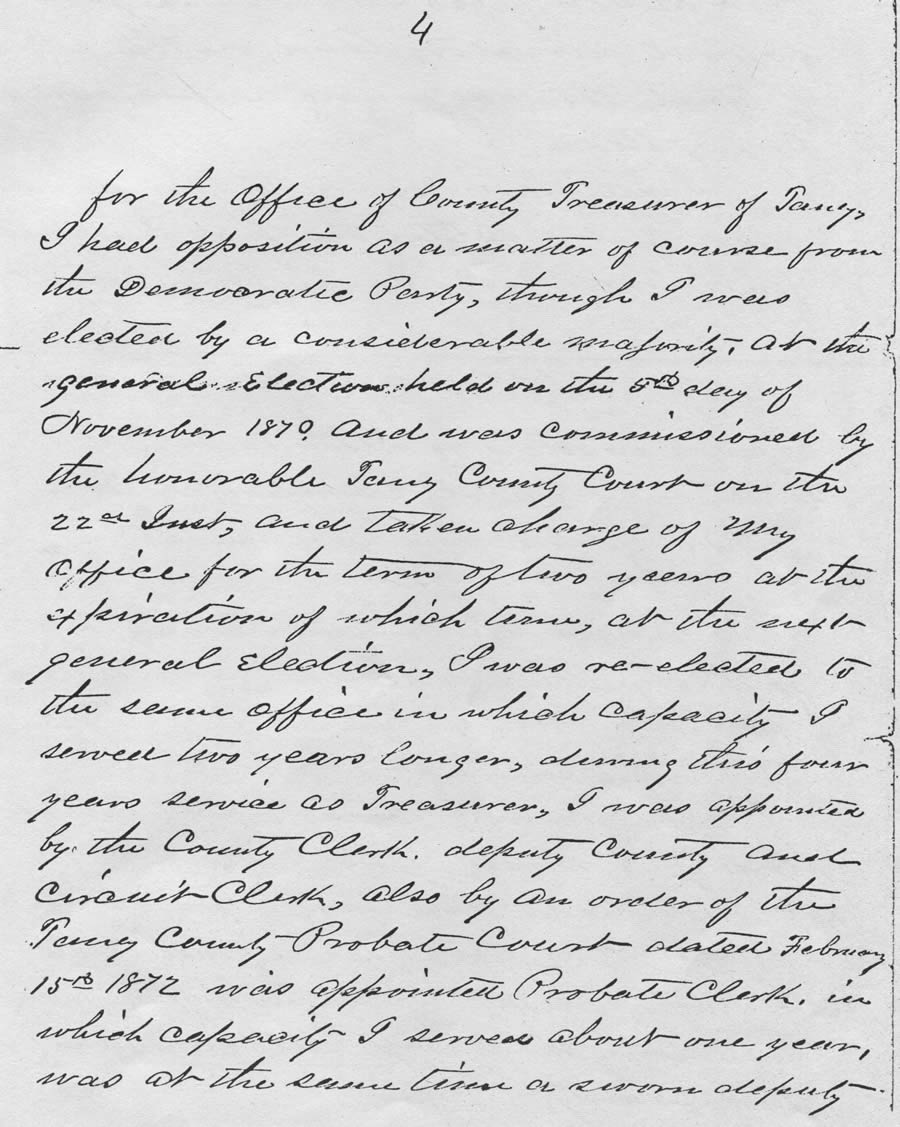 4
for the Office of County Treasurer of Taney,
I had opposition as a matter of course from
the Democratic Party, though I was
elected by a considerable majority. At the
general Election held on the 5th day of
November 1870. And was commissioned by
the honorable Taney County Court on the
22nd Inst, and taken charge of My
office for the term of two years at the
expiration of which term, at the next
general Election, I was re-elected to
the same office in which capacity I
served two years longer, during this four
years service as Treasurer, I was appointed
by the County Clerk. deputy County and
Circuit Clerk, also by an order of the
Taney County Probate Court dated February
15th 1872 was appointed Probate Clerk. in
which capacity I served about one year,
was at the same time a sworn deputy